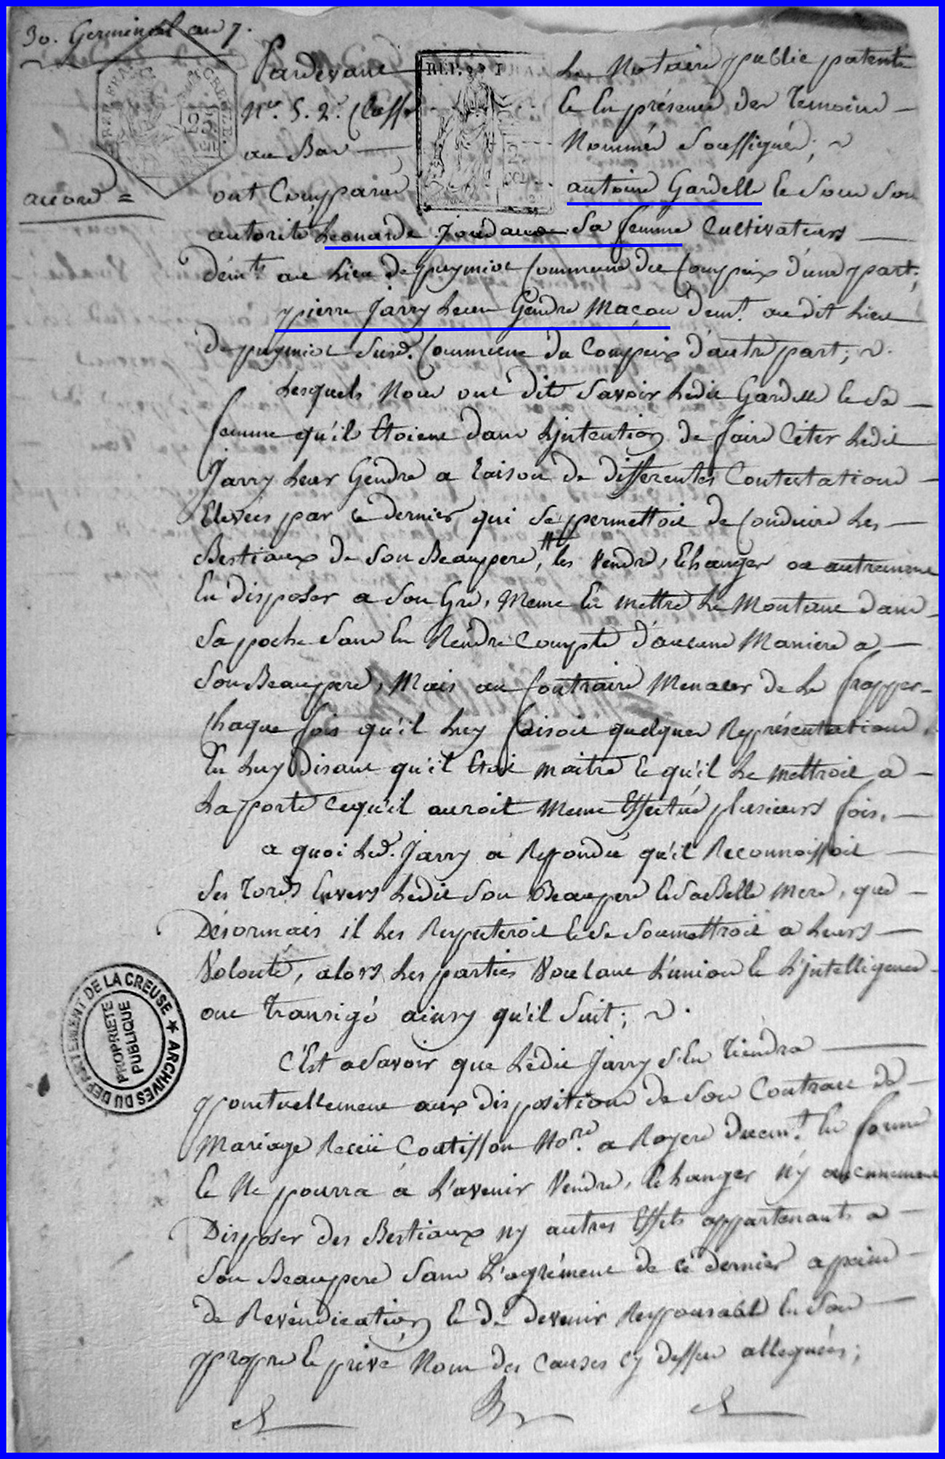 30. Germinal an 7.
Pardevant Le Notaire public patenté
Nro. 5. 2e. Classe Et En présence des temoins
au Bas Nommés soussignés; ~
accord =
ont Comparus antoine Gardelle et sous son
autorité Leonarde sa femme Cultivateurs
demts au Lieu de puymiot Commune du Compeix d'une part;
pierre Jarry Leur Gendre Maçon demt. au dit Lieu
de puymiot susd. Commune du Compeix d'autre part; ~.
Lesquels Nous ont dit savoir Ledit Gardelle et sa
femme qu'il Etoient dans L'jntention de faire Citer Ledit
Jarry Leur Gendre a raison de differentes Contestations
Elevées par ce dernier, qui se permettoit de Conduire Les
Bestiaux de son Beaupere, les vendre, Echanger ou autrement
En disposer a son Gré, Meme En mettre Le Montant dans
sa poche sans En Rendre Compte d'aucune Maniere a
son Beaupere, Mais au Contraire Menacer de Le frapper
Chaque fois qu'il Luy faisoit quelques Représentations,
En Luy Disant qu'il Etoit maitre et qu'il Le mettroit a
La porte Cequ'il auroit Meme Effectué plusieurs fois,
a quoi Led. Jarry a Repondu qu'il Reconnoissoit
ses Tords Envers Ledit son Beaupere et sa Belle mere, que
Désormais il Les Respecteroit et se soumettroit a Leurs
Volonté, alors Les parties Voulant L'union et L'jntelligence
ont transigé ainsy qu'il suit; ~.
C'Est asavoir que Ledit Jarry s'En tiendra
ponctuellement aux dispositions de son Contrat de
Mariage Receü Coutisson Nore. a Royere Duemt. En forme
et Ne pourra à L'avenir Vendre, Echanger n'y aucunement
Disposer des Bestiaux ny autres Effets appartenants a
son Beaupere sans L'agrément de ce dernier a peine
de Revendication et de devenir Responsable En son
propre et privé Nom des causes cy dessus alleguées;
REP.
ARCHIVES DU DEPARTEMENT DE LA CREUSE ★
PROPRIETE
PUBLIQUE